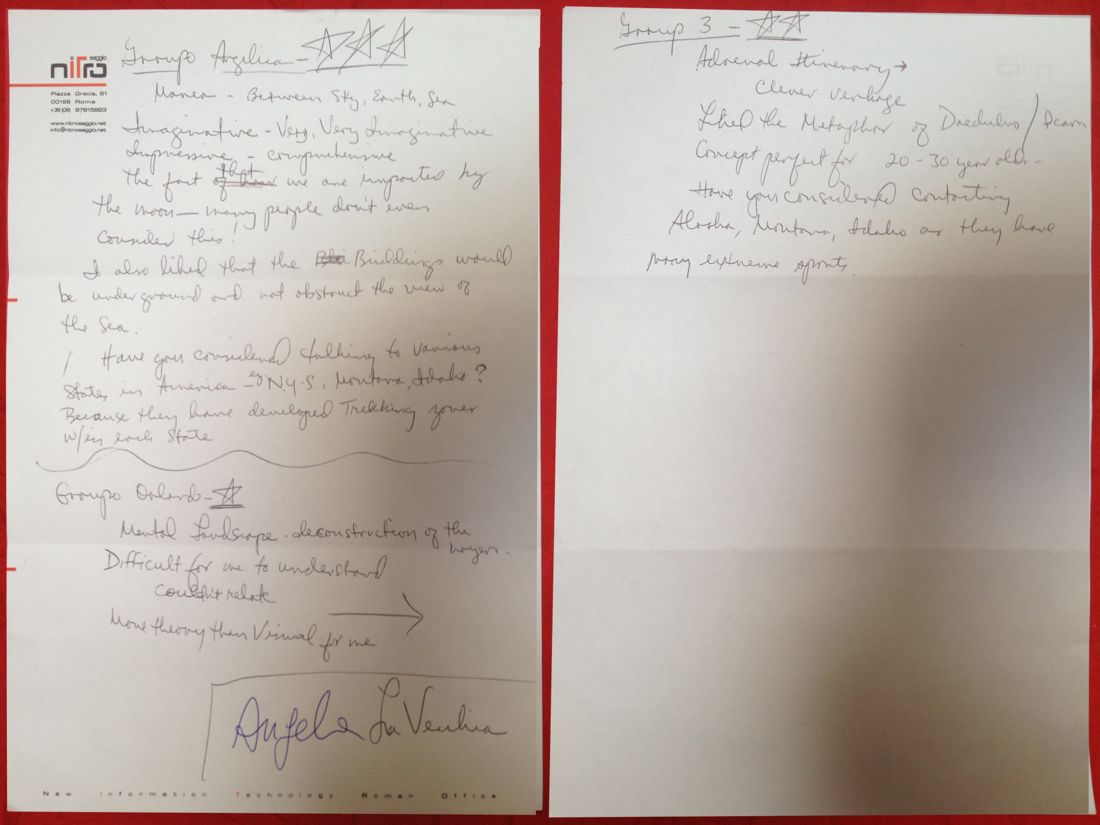 nitro
saggio
Piazza Grecia, 61
00196 Roma
www.nitrosaggio.net
info@nitrosaggio.net
Groupo Angelica -
Marea - Between Sky, Earth, Sea
Imaginative - Very, Very Imaginative
Impressive - comprehensive
The fact that we are impacted by
the moon — many people don't even
consider this!
I also liked that the Buildings would
be underground and not obstruct the view of
the Sea.
Have you considered talking to various
States in America - eg N.Y.S., Montana, Idaho?
Because they have developed Trekking zones
w/in each State
Groupo Orlando -
Mental Landscape - deconstruction of the
layers -
Difficult for me to understand
couldn't relate
More theory than Visual for me
Angela La Vecchia
New Information Technology Roman Office
Group 3 -
Adrenal Itinerary →
Clever verbage
Liked the Metaphor of Daedulus / Icarus
Concept perfect for 20-30 year olds -
Have you considered contacting
Alaska, Montana, Idaho as they have
many extreme sports.